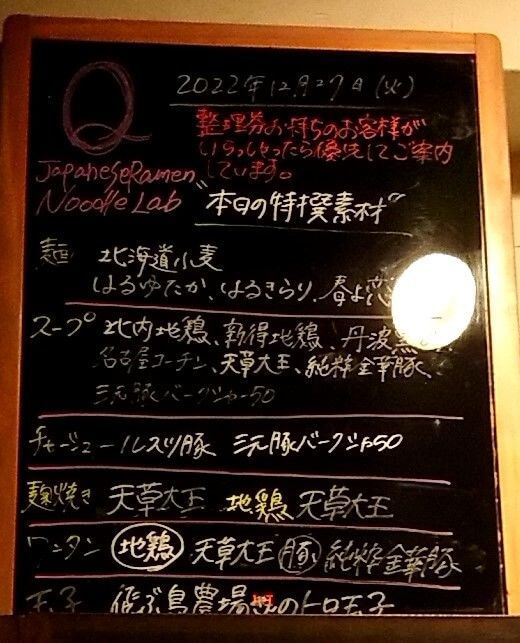 Q
2022年12月27日(火)
整理券お持ちのお客様が
いらっしゃったら優先してご案内
しています。
Japanese Ramen
Noodle Lab
"本日の特撰素材"
麺 北海道小麦
はるゆたか、はるきらり、春よ恋
スープ 北内地鶏、新得地鶏、丹波黒
名古屋コーチン、天草大王、純粋金華豚、
三元豚バークシャー50
チャーシュー ルスツ豚 三元豚バークシャ50
麹焼き 天草大王 地鶏 天草大王
ワンタン 地鶏 天草大王 豚 純粋金華豚
玉子 飛ぶ鳥農場さんのトロ玉子